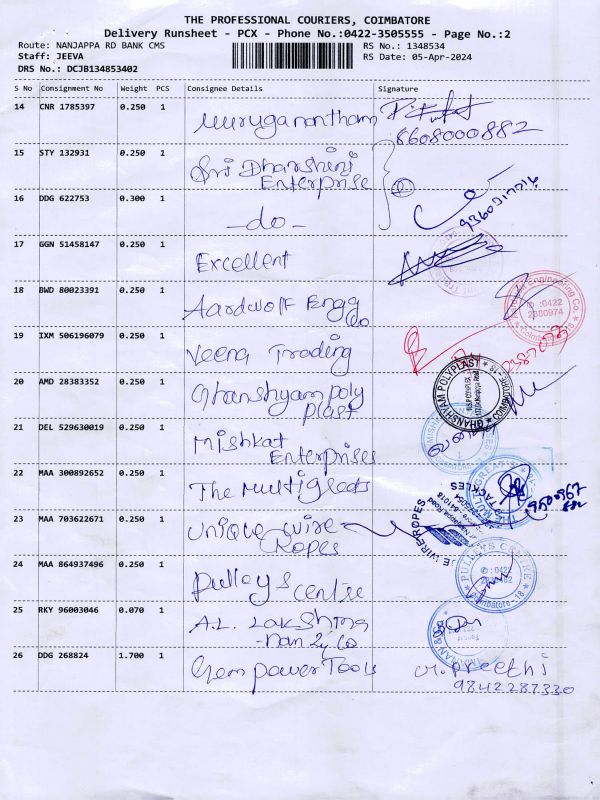 THE PROFESSIONAL COURIERS, COIMBATORE
Delivery Runsheet - PCX - Phone No.:0422-3505555 - Page No.:2
Route: NANJAPPA RD BANK CMS RS No.: 1348534
Staff: JEEVA RS Date: 05-Apr-2024
DRS No.: DCJB134853402
S No Consignment No Weight PCS Consignee Details Signature
14 CNR 1785397 0.250 1 Muruganantham
8608000882
15 STY 132931 0.250 1 Sri Dharshini
Enterprise
16 DDG 622753 0.300 1 -do-
17 GGN 51458147 0.250 1 Excellent
18 BWD 80023391 0.250 1 Aardwolf Engg
Co
Engineering Co.
✆ :0422
2380974
Coimbatore-18
19 IXM 506196079 0.250 1 Veena Trading
20 AMD 28383352 0.250 1 Ghanshyam poly
plast
GHANSHYAM POLYPLAST
COIMBATORE - 18
21 DEL 529630019 0.250 1 Mishkat
Enterprises
22 MAA 300892652 0.250 1 The Multigreats
9500967
23 MAA 703622671 0.250 1 Unique wire
Ropes
WIRE ROPES
24 MAA 864937496 0.250 1 Pulleys centre
PULLEYS CENTRE
✆ :0422
Coimbatore-18
25 RKY 96003046 0.070 1 A.L. Lakshma
-nan & Co
26 DDG 268824 1.700 1 Gem power Tools M. Preethi
9842287330